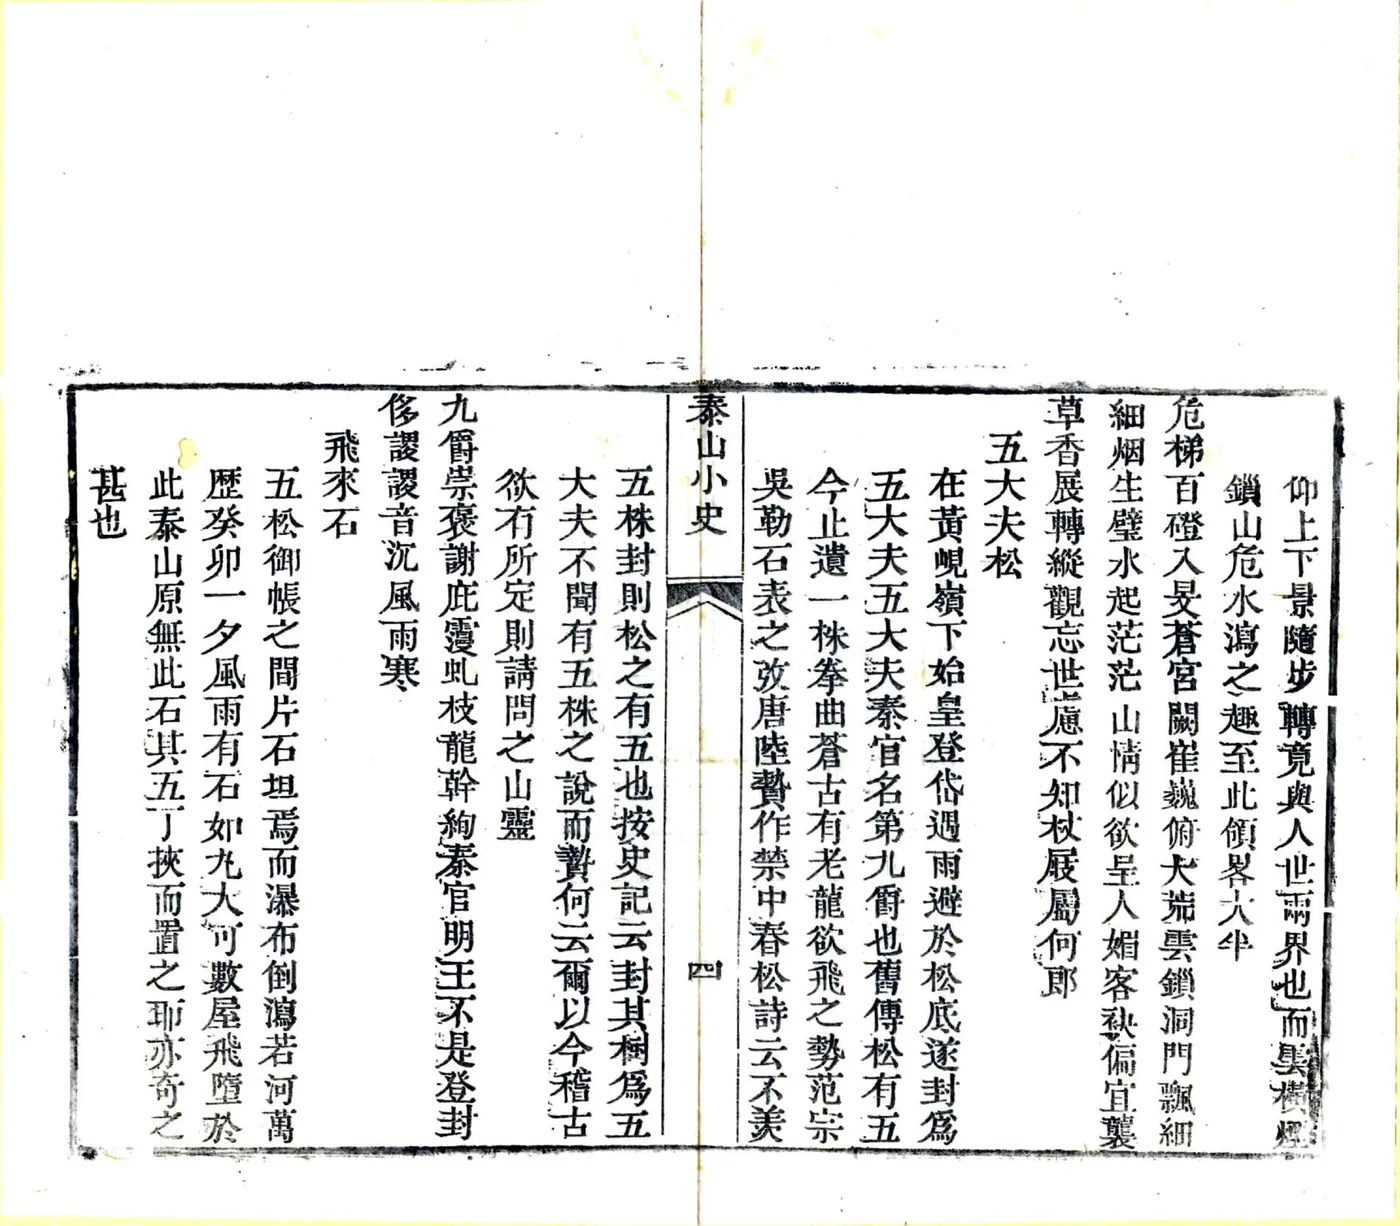 仰上下景隨步轉竟與人世兩界也而雲橫煙
鎖山危水瀉之趣至此領畧大半
危梯百磴入旻蒼宮闕崔巍俯大荒雲鎖洞門飄細
細烟生璧水起茫茫山情似欲呈人媚客袂偏宜襲
草香展轉縱觀忘世慮不知杖屐屬何郎
五大夫松
在黃峴嶺下始皇登岱遇雨避於松底遂封爲
五大夫五大夫秦官名第九爵也舊傳松有五
今止遺一株拳曲蒼古有老龍欲飛之勢范宗
吳勒石表之攷唐陸贄作禁中春松詩云不羡
泰山小史
四
五株封則松之有五也按史記云封其樹爲五
大夫不聞有五株之說而贄何云爾以今稽古
欲有所定則請問之山靈
九爵崇褒謝庇霑虬枝龍幹絢秦官明王不是登封
侈謖謖音沉風雨寒
飛來石
五松御帳之間片石坦焉而瀑布倒瀉若河萬
歷癸卯一夕風雨有石如九大可數屋飛墮於
此泰山原無此石其五丁挾而置之耶亦奇之
甚也